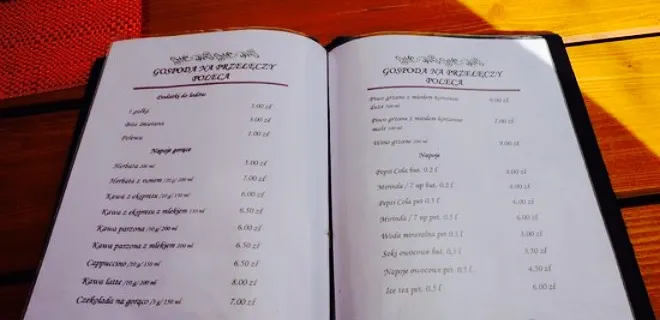 GOSPODA NA PRZEŁĘCZY
POLECA
Dodatki do lodów
1 gałka 3.00 zł
Bita śmietana 3.00 zł
Polewa 1.00 zł
Napoje gorące
Herbata 200 ml 5.00 zł
Herbata z rumem /10 g/ 200 ml 7.00 zł
Kawa z ekspresu /10 g/ 150 ml 6.00 zł
Kawa z ekspresu z mlekiem 150 ml 6.50 zł
Kawa parzona /10 g/ 200 ml 6.00 zł
Kawa parzona z mlekiem 200 ml 6.50 zł
Cappuccino /10 g/ 150 ml 6.50 zł
Kawa latte /10 g/ 200 ml 8.00 zł
Czekolada na gorąco /3 g/ 150 ml 7.00 zł
GOSPODA NA PRZEŁĘCZY
POLECA
Piwo grzane z miodem korzenne
duże 500 ml 9.00 zł
Piwo grzane z miodem korzenne
małe 300 ml 7.00 zł
Wino grzane 200 ml
Napoje
Pepsi Cola but. 0,2 l
Mirinda / 7 up but. 0,2 l
Pepsi Cola pet 0,5 l
Mirinda / 7 up pet. 0,5 l 6.00 zł
Woda mineralna pet 0,5 l
Soki owocowe but. 0,3 l
Napoje owocowe pet. 0,5 l 4.50 zł
Ice tea pet. 0,5 l 6.00 zł